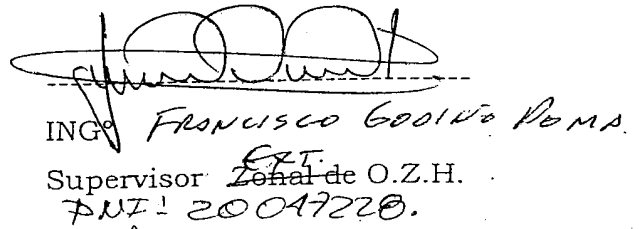 INGº FRANCISCO GODINO POMA.
EXT.
Supervisor Zonal de O.Z.H.
DNI: 20047228.